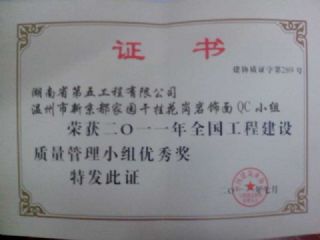 证书
建协质证字第289号
湖南省第五工程有限公司
温州市新京都家园干挂花岗岩饰面QC小组
荣获二〇一一年全国工程建设
质量管理小组优秀奖
特发此证
二〇一一年七月